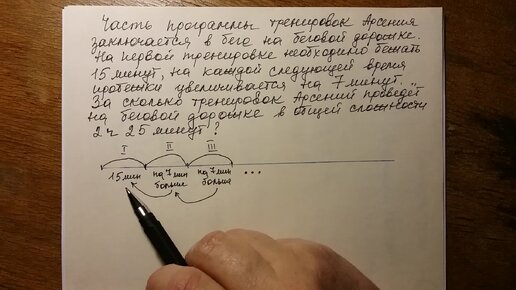 Часть программы тренировок Арсения
заключается в беге на беговой дорожке.
На первой тренировке необходимо бежать
15 минут, на каждой следующей время
пробежки увеличивается на 7 минут.
За сколько тренировок Арсений проведёт
на беговой дорожке в общей сложности
2 ч 25 минут?
I II III
15 мин на 7 мин на 7 мин ...
больше больше